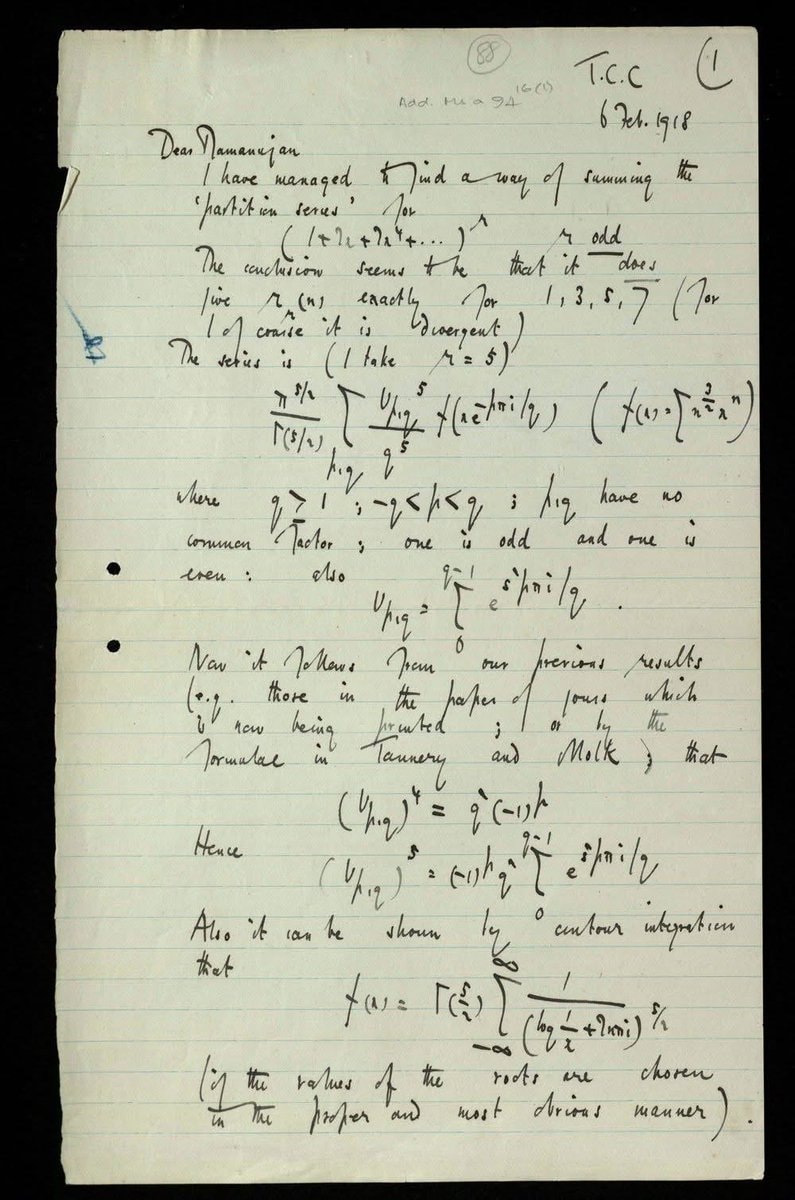 88
T.C.C (1
Add. Ms a 94 16(1)
6 Feb. 1918
Dear Ramanujan
I have managed to find a way of summing the
'partition series' for
(1+2x+2x⁴+...)ʳ r odd
The conclusion seems to be that it does
give r_r(n) exactly for 1, 3, 5, 7 (for
1 of course it is divergent)
The series is (I take r = 5)
π^{5/2}/Γ(5/2) Σ_{p,q} U_{p,q}^5/q^5 f(xe^{-pπi/q}) (f(x) = Σ n^{3/2} x^n)
where q ≥ 1 ; -q < p < q ; p,q have no
common factor ; one is odd and one is
even : also
U_{p,q} = Σ_0^{q-1} e^{s²pπi/q} .
Now it follows from our previous results
(e.g. those in the paper of yours which
is now being printed ; or by the
formulae in Tannery and Molk) that
(U_{p,q})⁴ = q²(-1)^p
Hence
(U_{p,q})⁵ = (-1)^p q² Σ_0^{q-1} e^{s²pπi/q}
Also it can be shown by contour integration
that
f(x) = Γ(5/2) Σ_{-∞}^{∞} 1/(log 1/x + 2kπi)^{5/2}
(if the values of the roots are chosen
in the proper and most obvious manner) .